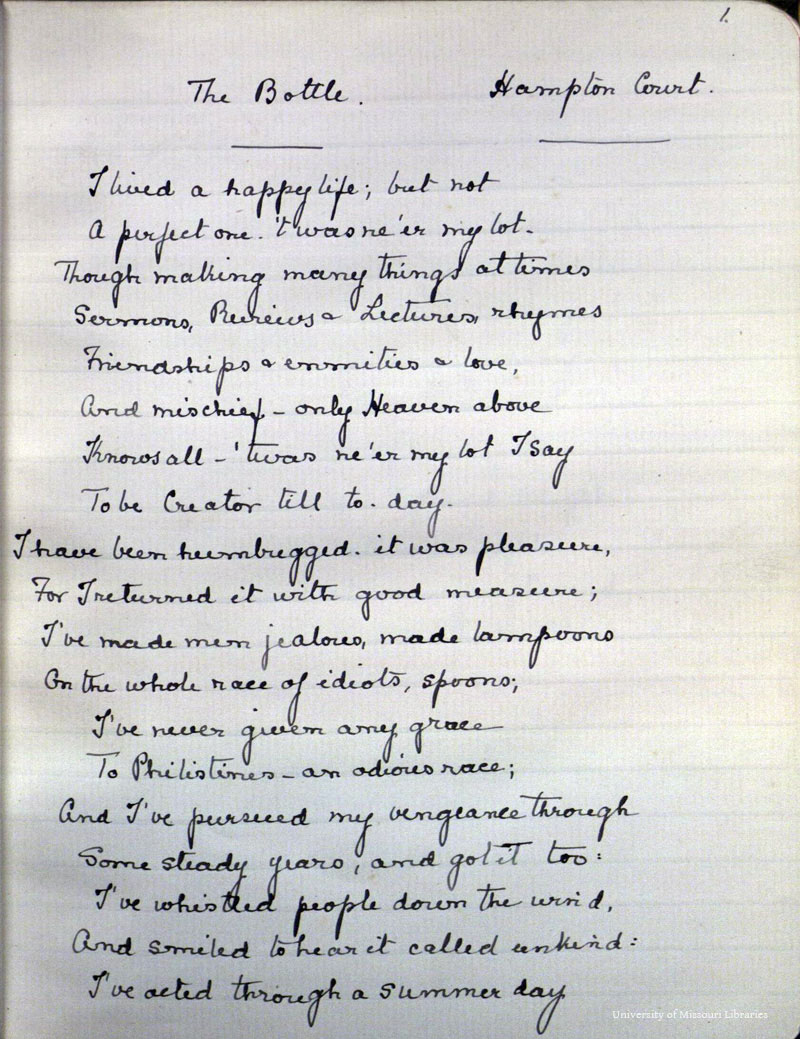 1.
The Bottle. Hampton Court.
I lived a happy life; but not
A perfect one. 't was ne'er my lot -
Though making many things at times
Sermons, Reviews & Lectures, rhymes
Friendships & enmities & love,
And mischief - only Heaven above
Knows all - 'twas ne'er my lot I say
To be Creator till to-day.
I have been humbugged. it was pleasure,
For I returned it with good measure;
I've made men jealous, made lampoons
On the whole race of idiots, spoons;
I've never given any grace
To Philistines - an odious race;
And I've pursued my vengeance through
Some steady years, and got it too:
I've whistled people down the wind,
And smiled to hear it called unkind:
I've acted through a summer day
University of Missouri Libraries